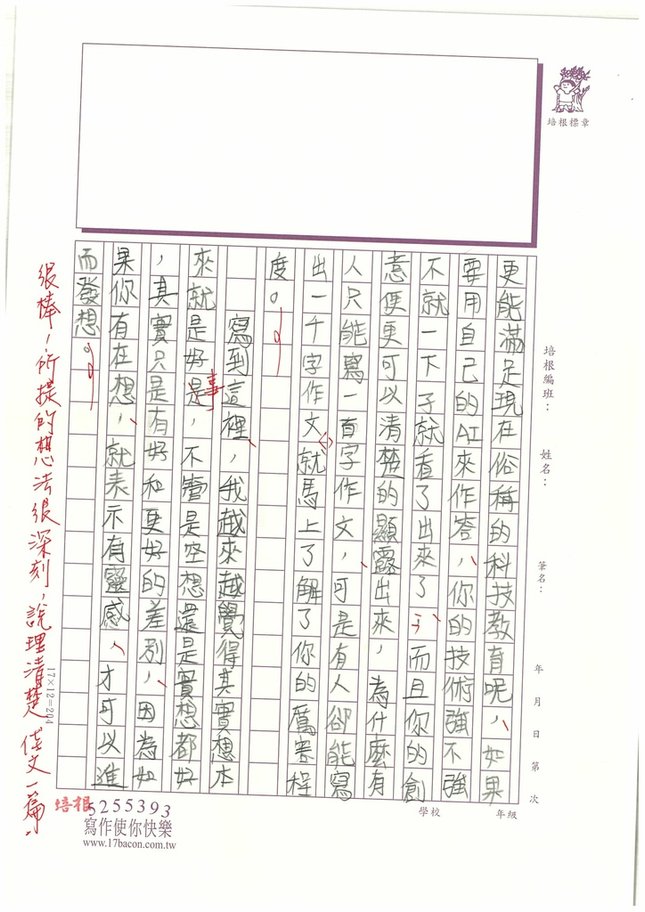 培根標章
培根編班：
姓名：
筆名：
年 月 日 第 次
更能滿足現在俗稱的科技教育呢，如果
要用自己的AI來作答，你的技術強不強
不就一下子就看了出來了，而且你的創
意便更可以清楚的顯露出來，為什麼有
人只能寫一百字作文，可是有人卻能寫
出一千字作文就馬上了解了你的厲害程
度。
寫到這裡，我越來越覺得其實想本
來就是好是，不管是空想還是實想都好
事
，其實只是有好和更好的差別，因為如
果你有在想，就表示有靈感，才可以進
而發想。
很棒，所提的想法很深刻，說理清楚，佳文一篇。
17×12=204
學校
年級
培根 5255393
寫作使你快樂
www.17bacon.com.tw